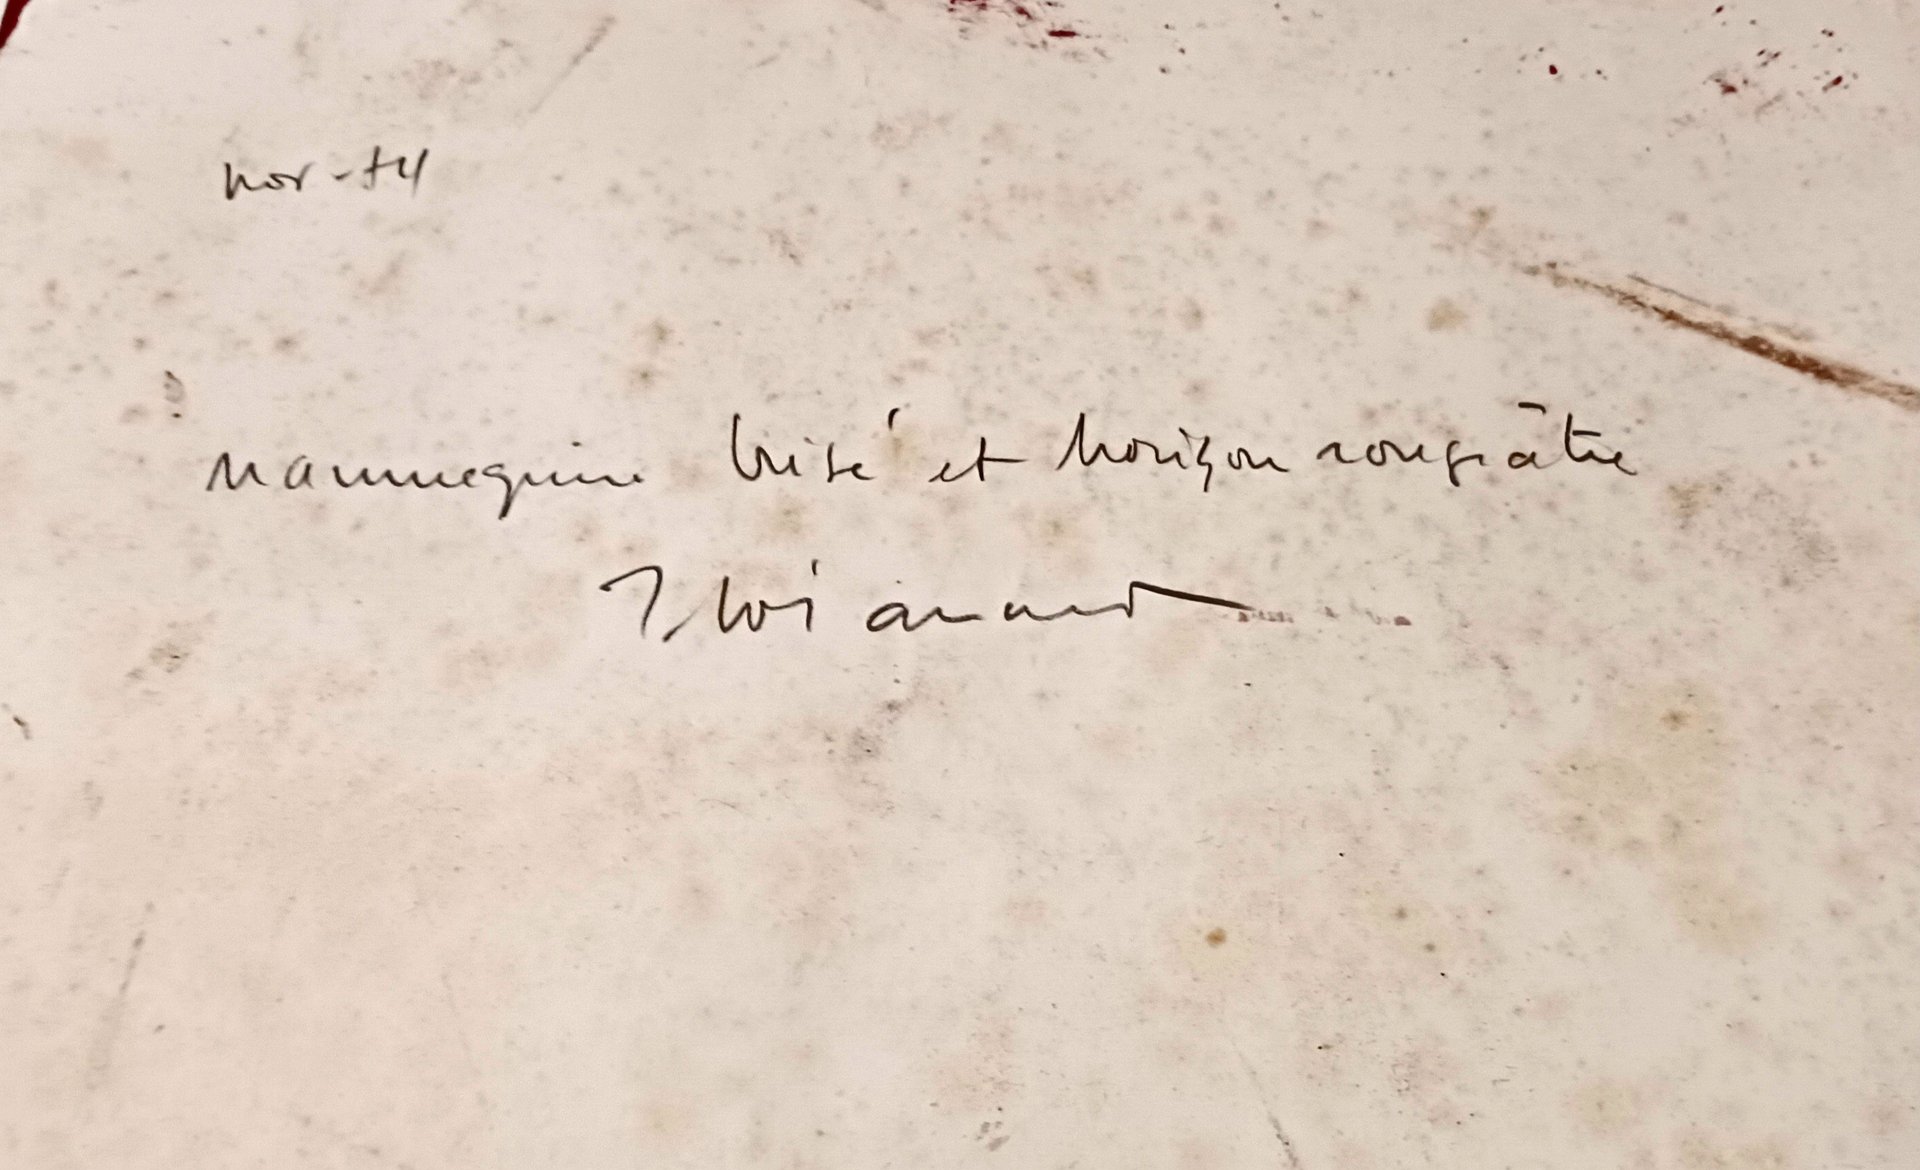 nov-74
mannequin brisé et horizon rougeâtre